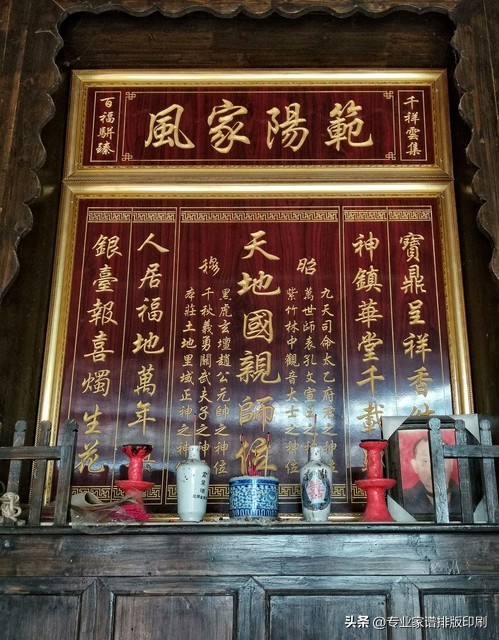 千祥雲集
範陽家風
百福駢臻
寶鼎呈祥香
神鎮華堂千載
昭
九天司命太乙府君之神
萬世師表孔文宣王之神
紫竹林中觀音大士之神位
天地國親師位
穆
黑虎玄壇趙公元帥之神位
千秋義勇關武夫子之神
本莊土地里域正神之神
人居福地萬年
銀臺報喜燭生花
头条 @专业家谱排版印刷